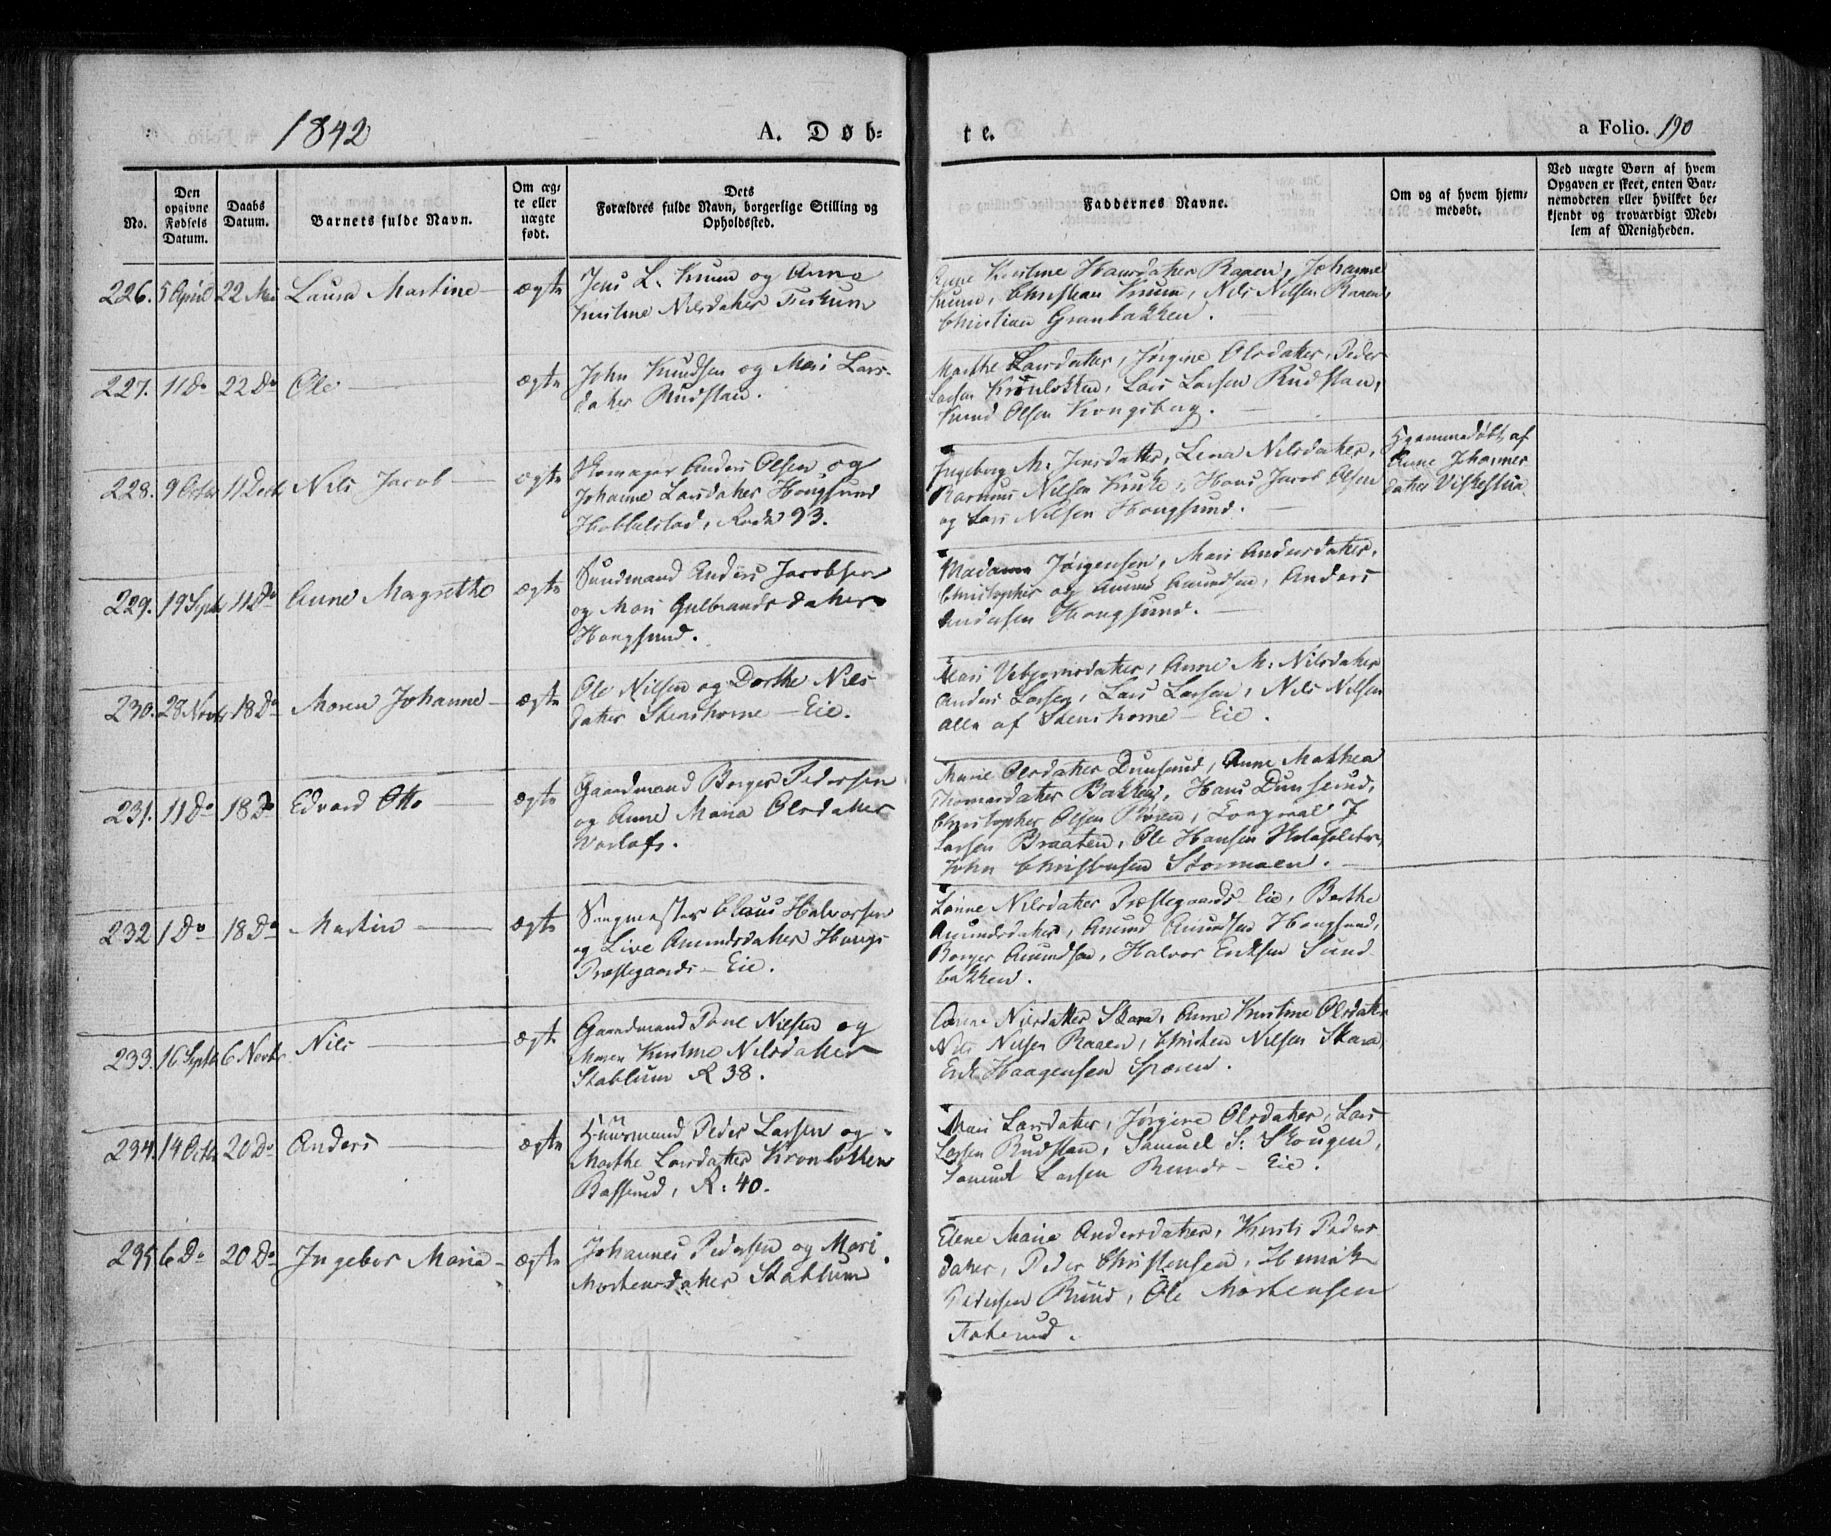 1842 A. Døb- te. a Folio. 190
No.
Den opgivne Fødsels Datum.
Daabs Datum.
Barnets fulde Navn.
Om ægte eller uægte født.
Dets Forældres fulde Navn, borgerlige Stilling og Opholdssted.
Faddernes Navne.
Om og af hvem hjemmedøbt.
Ved uægte Børn af hvem Opgaven er skeet, enten Barnemoderen eller hvilket bekjendt og troværdigt Medlem af Menigheden.
226. 5 April 22 Mai Laura Martine ægte
Jens L. Kruun og Anne
Kirstine Nilsdatter Fiskum
Anne Kirstine Hansdatter Raaen, Johanne
Kruun, Christian Kruun, Nils Nilsen Raaen,
Christian Granbakken.
227. 11 Do 22 Do Ole ægte
John Knudsen og Mari Lars-
datter Rudstan.
Marthe Larsdatter, Jørgine Olsdatter, Peder
Larsen Kronløkken, Lars Larsen Rudstan,
Knud Olsen Kongsberg.
228. 9 Octbr 11 Decb Nils Jacob ægte
Skomager Anders Olsen og
Johanne Larsdatter Hougsund
Hobbelstad, Rode 93.
Ingeborg M. Jensdatter, Lena Nilsdatter,
Rasmus Nilsen Kruke, Hans Jacob Olsen
og Lars Nilsen Hougsund.
Hjemmedøbt af
Anne Johannes
datter
229. 19 Septb 11 Do Anne Magrethe ægte
Sundmand Anders Jacobsen
og Mari Gulbrandsdatter
Hougsund.
Madame Jørgensen, Mari Andersdatter,
Christopher og Amund Amundsen, Anders
Andersen Hougsund.
230. 28 Novb 18 Do Maren Johanne ægte
Ole Nilsen og Dorthe Nils
datter Stenshorne-Eie.
Mari Vebjørnsdatter, Anne M. Nilsdatter
Anders Larsen, Lars Larsen, Nils Nilsen
alle af Stenshorne-Eie.
231. 11 Do 18 Do Edvard Otto ægte
Gaardmand Borger Pedersen
og Anne Maria Olsdatter
Varlofs.
Marie Olsdatter Dunsrud, Anne Mathea
Thomasdatter Bakken, Hans Dunserud,
Christopher Olsen Røren,
Larsen Braaten, Ole Hansen
John Christensen Stormoen.
232 1 Do 18 Do Martin ægte
Sangmester Claus Halvorsen
og Live Amundsdatter Hougs
Præstegaards-Eie.
Nilsdatter Præstegaards Eie, Berthe
Amundsdatter, Amund Amundsen Hougsund,
Borger Amundsen, Halvor Eriksen Sund
bakken.
233. 16 Septb 6 Novbr Nils ægte
Gaardmand Povel Nilsen og
Maren Kirstine Nilsdatter
Stablum R 38.
Nilsdatter Skara, Anne Kirstine Olsdatter
Nils Nilsen Raaen, Christen Nilsen Skara
Erik Haagensen Spæren.
234. 14 Octb 20 Do Anders ægte
Huusmand Peder Larsen og
Marthe Larsdatter Kronløkken
Basserud, R: 40.
Mari Larsdatter, Jørgine Olsdatter, Lars
Larsen Rudstan, Samuel S: Skougen,
Larsen Ruuds-Eie.
235 6 Do 20 Do Ingebor Maria ægte
Johannes Pedersen og Mari
Mortensdatter Stablum
Elene Marie Andersdatter, Kirsti Peders
datter, Peder Christensen, Henrik
Pedersen Ruud, Ole Mortensen